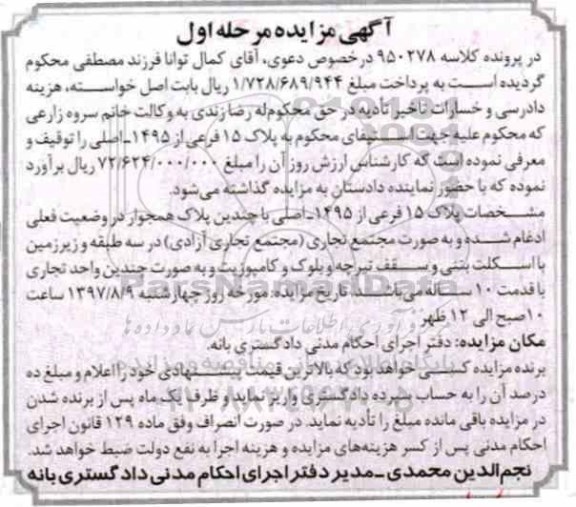 آگهی مزایده مرحله اول
در پرونده کلاسه ۹۵۰۲۷۸ درخصوص دعوی، آقای کمال توانا فرزند مصطفی محکوم
گردیده است به پرداخت مبلغ ۱/۷۲۸/۶۸۹/۹۴۴ ریال بابت اصل خواسته، هزینه
دادرسی و خسارات تاخیر تأدیه در حق محکوم‌له رضا زندی به وکالت خانم سروه زارعی
که محکوم علیه جهت استیفای محکوم به پلاک ۱۵ فرعی از ۱۴۹۵-اصلی را توقیف و
معرفی نموده است که کارشناس ارزش روز آن را مبلغ ۷۲/۶۲۴/۰۰۰/۰۰۰ ریال برآورد
نموده که با حضور نماینده دادستان به مزایده گذاشته می‌شود.
مشخصات پلاک ۱۵ فرعی از ۱۴۹۵-اصلی با چندین پلاک همجوار در وضعیت فعلی
ادغام شده و به صورت مجتمع تجاری (مجتمع تجاری آزادی) در سه طبقه و زیرزمین
با اسکلت بتنی و سقف تیرچه و بلوک و کامپوزیت و به صورت چندین واحد تجاری
با قدمت ۱۰ ساله می‌باشند. تاریخ مزایده: مورخه روز چهارشنبه ۱۳۹۷/۸/۹ ساعت
۱۰ صبح الی ۱۲ ظهر
مکان مزایده: دفتر اجرای احکام مدنی دادگستری بانه.
برنده مزایده کسی خواهد بود که بالاترین قیمت پیشنهادی خود را اعلام و مبلغ ده
درصد آن را به حساب سپرده دادگستری واریز نماید و ظرف یک ماه پس از برنده شدن
در مزایده باقی مانده مبلغ را تأدیه نماید. در صورت انصراف وفق ماده ۱۲۹ قانون اجرای
احکام مدنی پس از کسر هزینه‌های مزایده و هزینه اجرا به نفع دولت ضبط خواهد شد.
نجم‌الدین محمدی -مدیر دفتر اجرای احکام مدنی دادگستری بانه